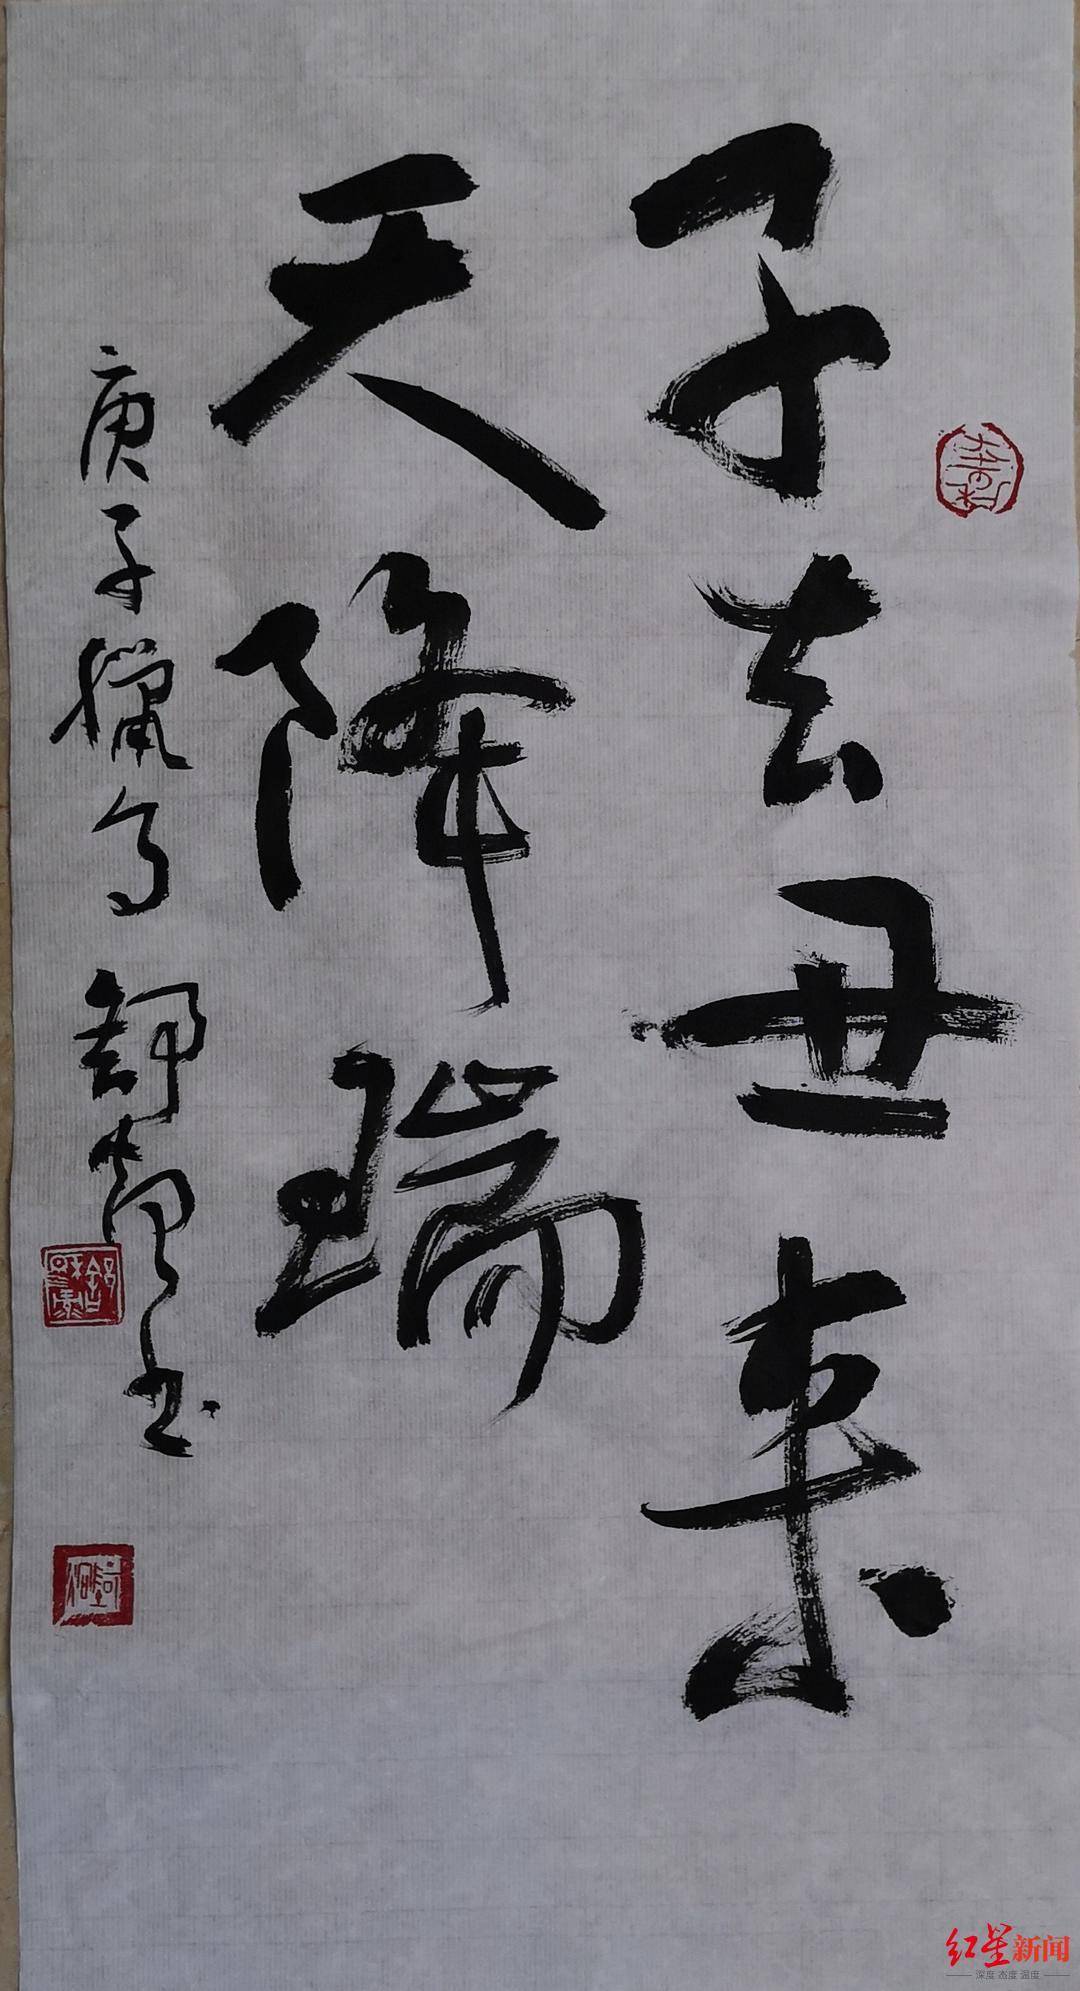 子去丑来
天降瑞
庚子猎月 舒 书
红星新闻
深度 态度 温度